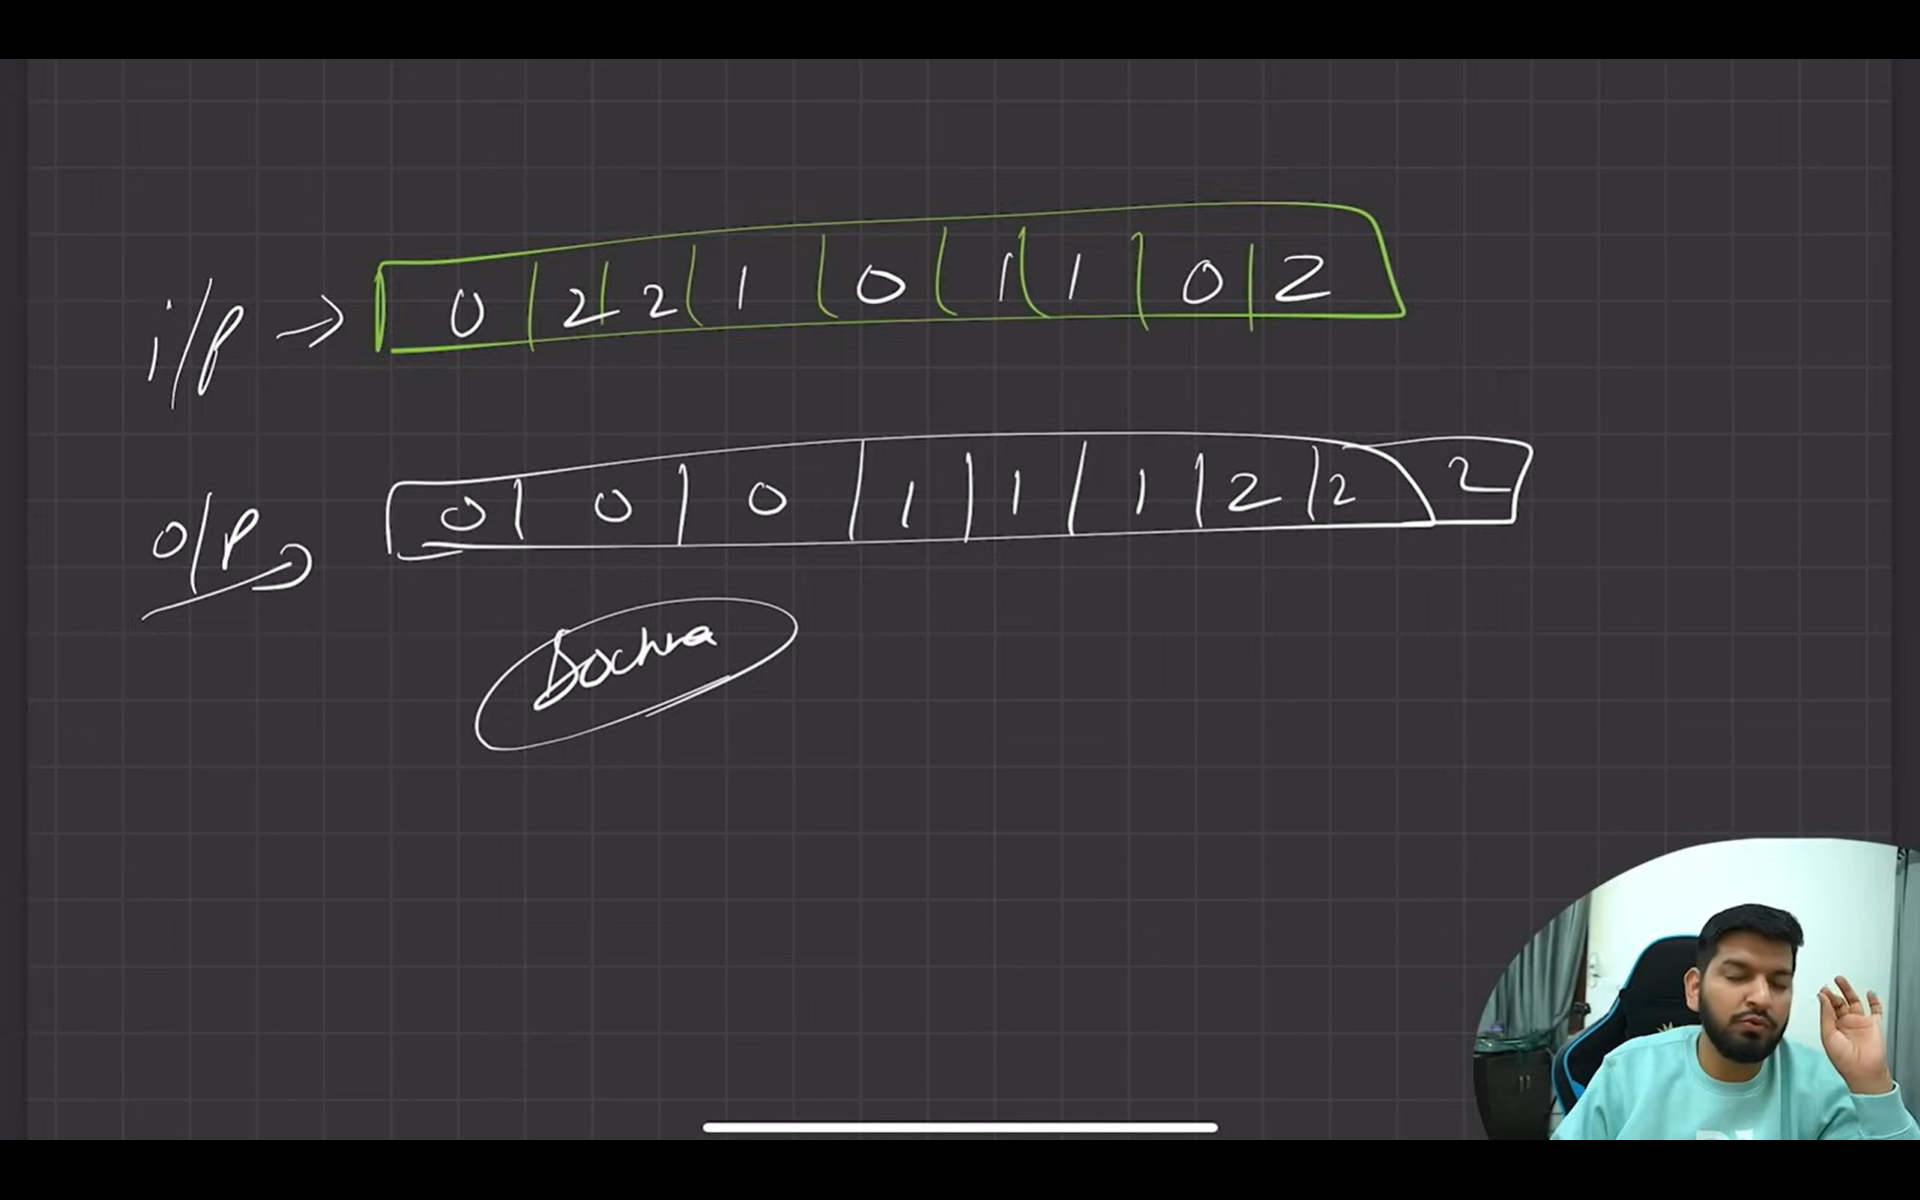 i/p → 0 2 2 1 0 1 1 0 2
o/p 0 0 0 1 1 1 2 2 2
Sochna